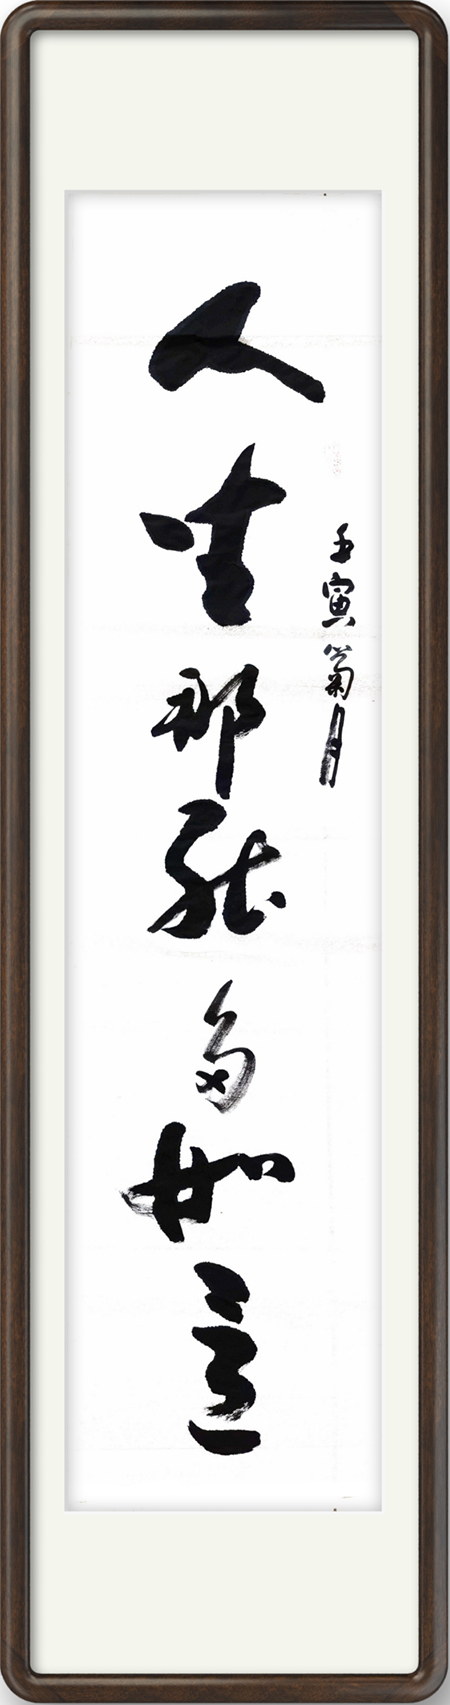 壬寅菊月
人生那能多如意